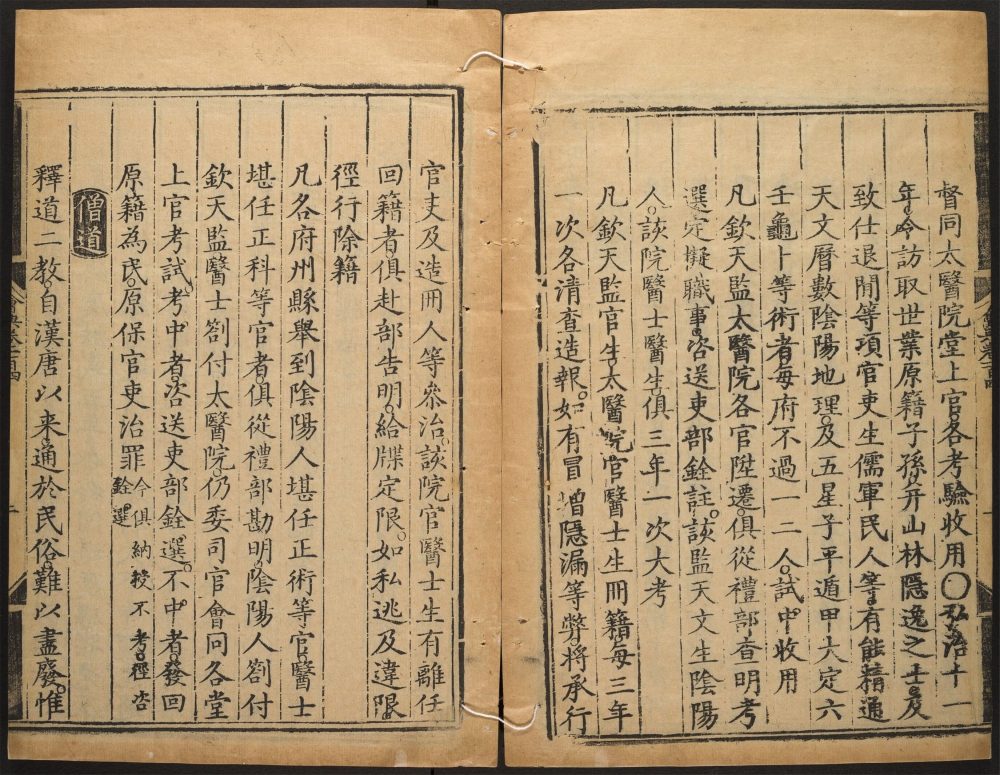 督同太醫院堂上官各考驗收用〇弘治十一
年令訪取世業原籍子孫并山林隱逸之士及
致仕退閒等項官吏生儒軍民人等有能精通
天文曆數陰陽地理及五星子平遁甲大定六
壬龜卜等術者每府不過一二人試中收用
凡欽天監太醫院各官陞遷俱從禮部查明考
選定擬職事咨送吏部銓註該監天文生陰陽
人該院醫士醫生俱三年一次大考
凡欽天監官生太醫院官醫士生冊籍每三年
一次各清查造報如有冒增隱漏等弊將承行
官吏及造冊人等叅治該院官醫士生有離任
回籍者俱赴部告明給牒定限如私逃及違限
徑行除籍
凡各府州縣舉到陰陽人堪任正術等官醫士
堪任正科等官者俱從禮部勘明陰陽人劄付
欽天監醫士劄付太醫院仍委司官會同各堂
上官考試考中者咨送吏部銓選不中者發回
原籍為民原保官吏治罪今俱納授不考徑咨
銓選
僧道
釋道二教自漢唐以來通於民俗難以盡廢惟